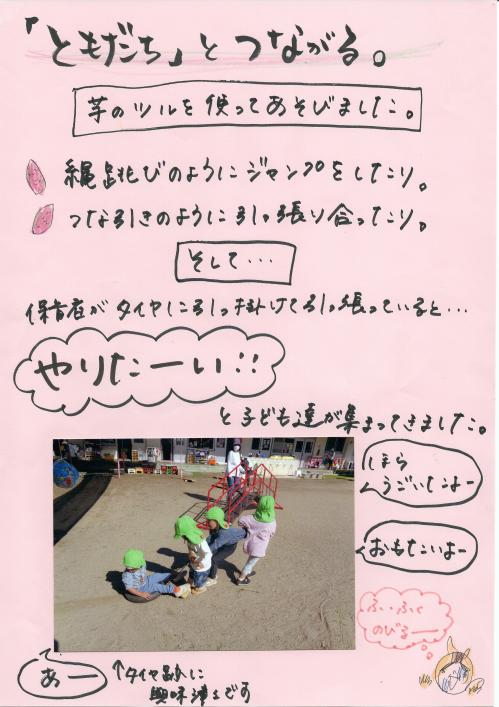 「ともだち」とつながる。
芋のツルを使ってあそびました。
縄跳びのようにジャンプをしたり。
つな引きのように引っ張り合ったり。
そして・・・
保育者がタイヤに引っ掛けて引っ張っていると・・・
やりたーい!!
と子ども達が集まってきました。
ほら
うごいたよー
おもたいよー
ふ、ふく
のびるー
あー
↑タイヤ跡に
興味津々です